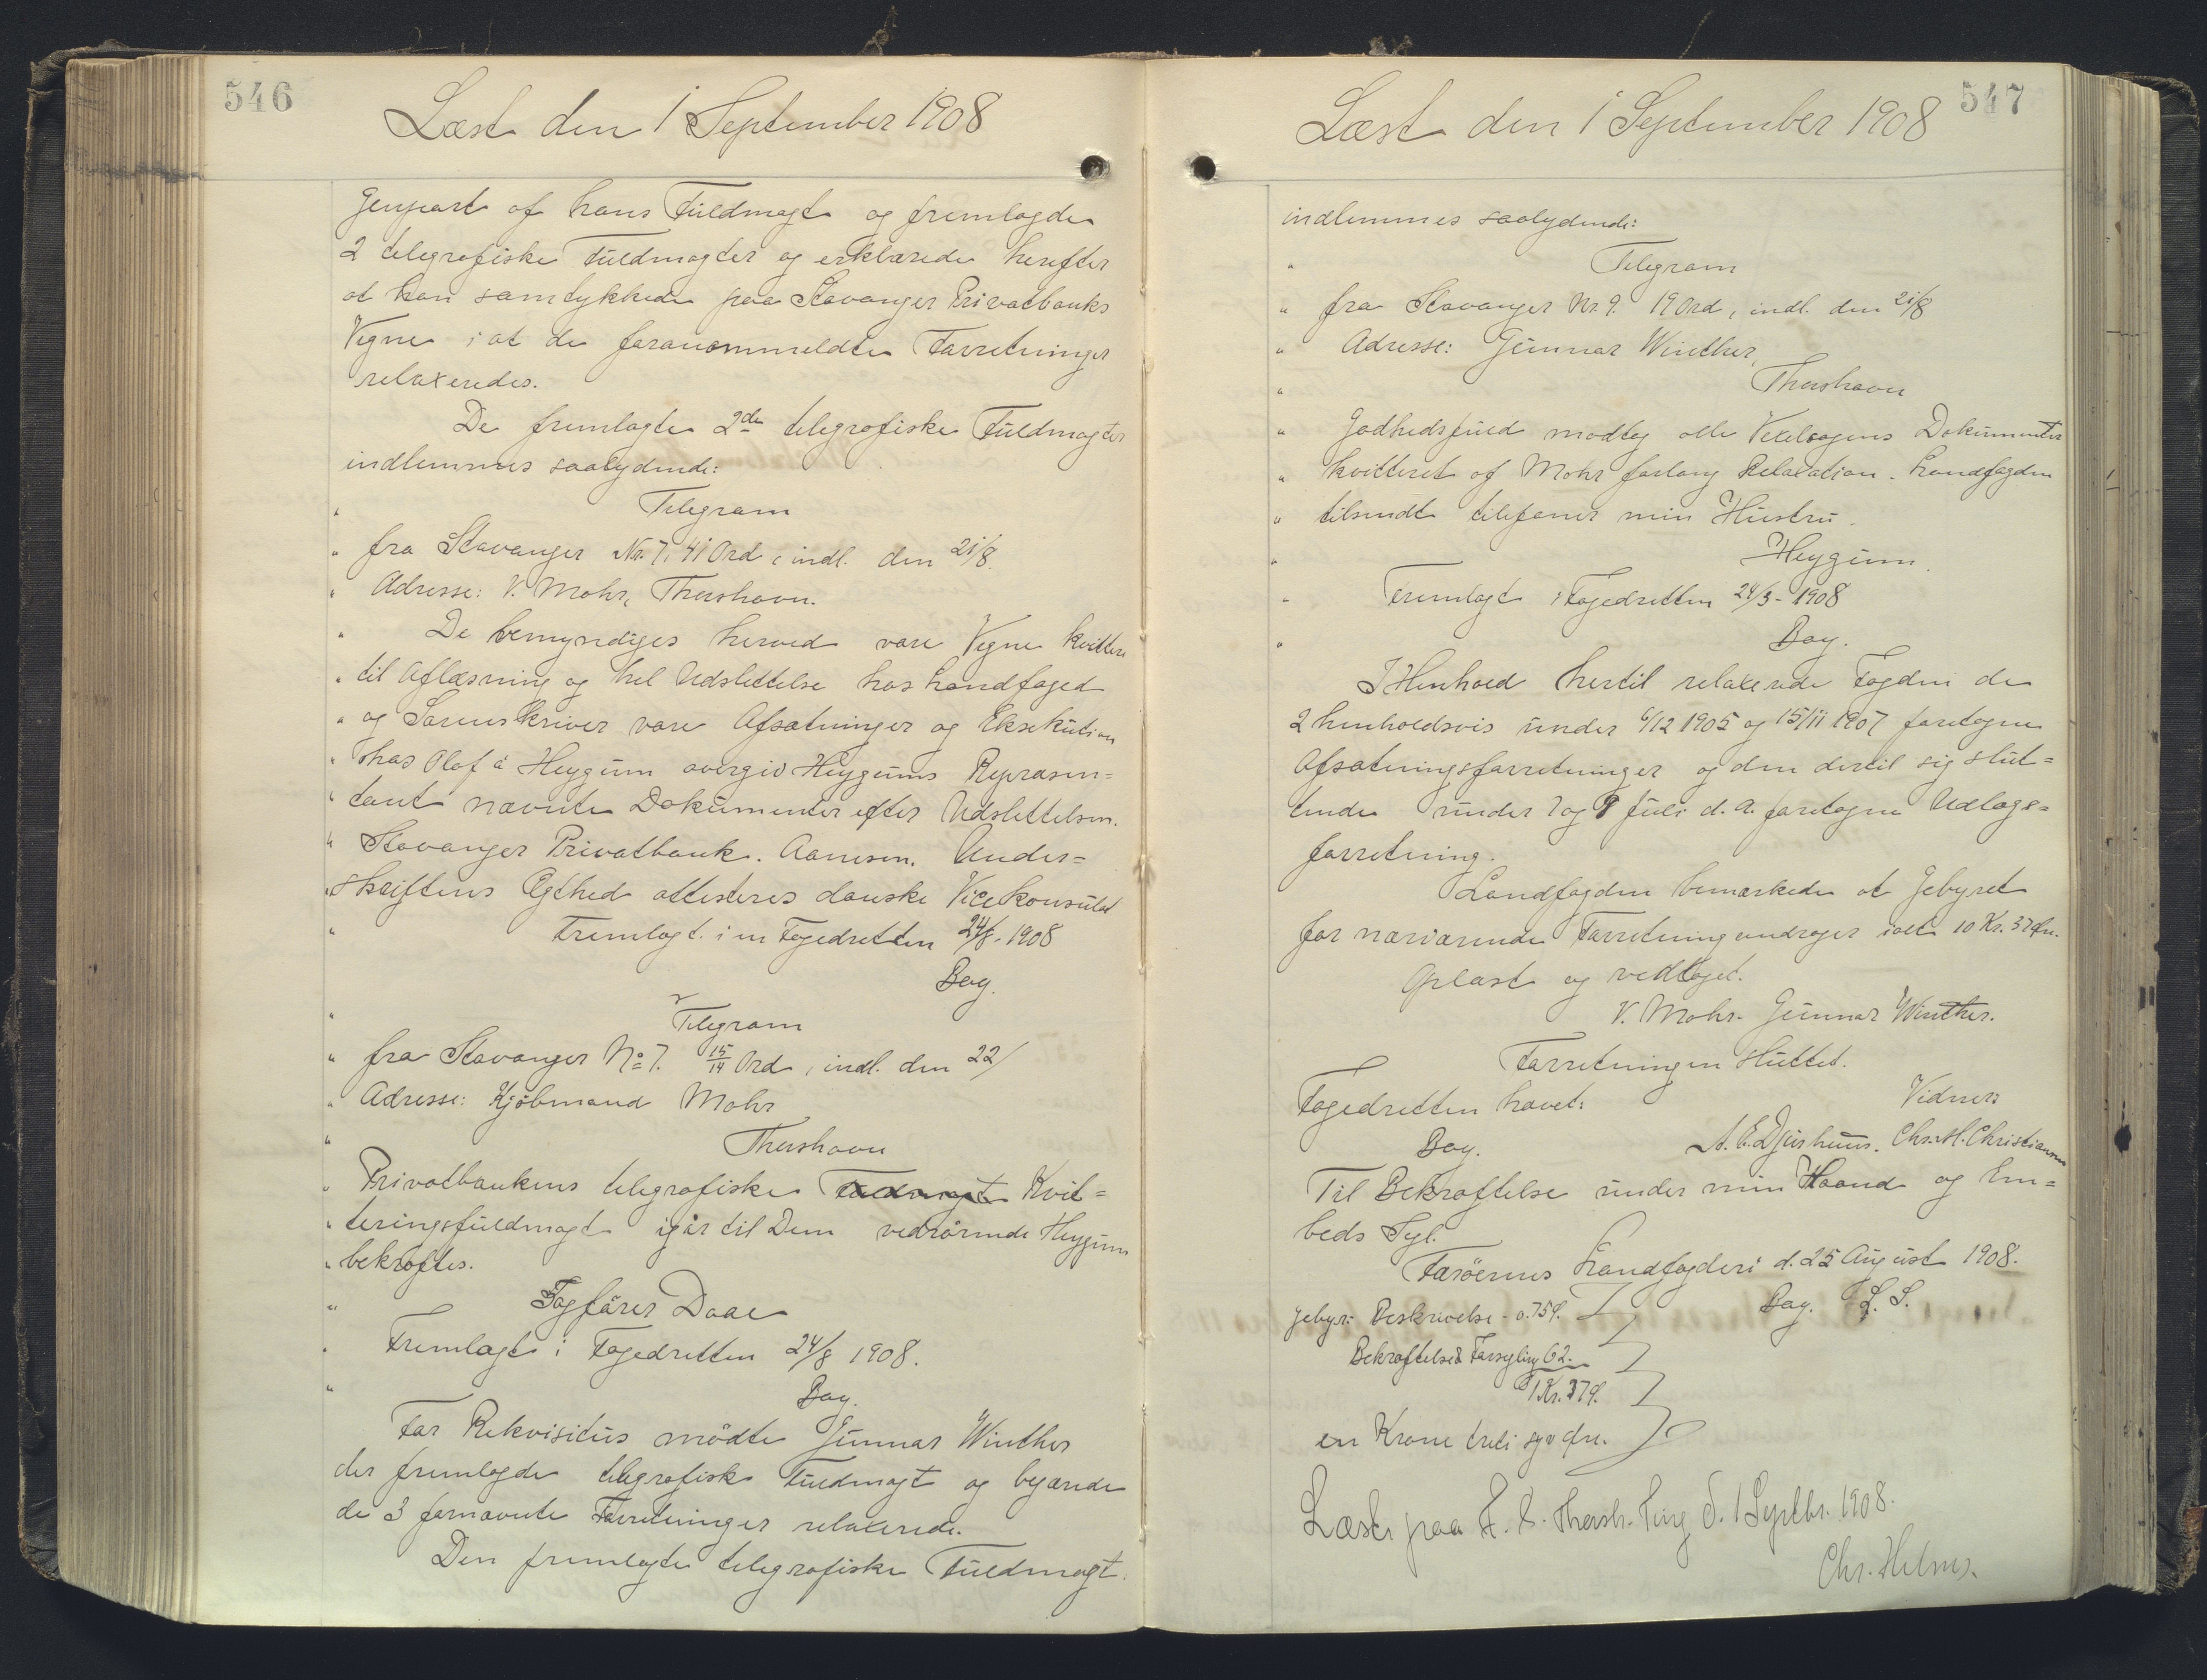 546
Læst den 1 September 1908
Genpart af hans Fuldmagt og fremlagde
2 telegrafiske Fuldmagter og erklærede herefter
at han samtykkede paa Stavanger Privatbanks
Vegne i at de foranommeldte Forretninger
relaxeredes.
De fremlagte 2de telegrafiske Fuldmagter
indlemmes saalydende:
" Telegram
" fra Stavanger Nr. 7, 41 Ord, indl. den 21/8.
" Adresse: V. Mohr, Thorshavn.
" De bemyndiges herved vore Vegne kvittere
" til Aflæsning og hel Udslettelse hos Landfoged
" og Sorenskriver vore Afsætninger og Eksekution
" hos Olaf á Heygum overgiv Heygums Repræsen=
" tant nævnte Dokumenter efter Udslettelsen.
" Stavanger Privatbank. Aanesen. Under=
" skriftens Ægthed attesteres danske Vicekonsulat
" Fremlagt i en Fogedretten 24/8 - 1908
Bay.
" Telegram
" fra Stavanger No 7. 15/14 Ord, indl. den 22/
" Adresse: Kjöbmand Mohr
" Thorshavn
" Privatbankens telegrafiske Fuldmagt Kvit=
" teringsfuldmagt igår til Dem vedrörende Heygum
" bekræftes.
" Sagförer Daae
" Fremlagt i Fogedretten 24/8 1908.
" Bay.
For Rekvisitus mödte Gunnar Winther
der fremlagde telegrafisk Fuldmagt og begærede
de 3 fornævnte Forretninger relaxerede.
Den fremlagte telegrafiske Fuldmagt
547
Læst den 1 September 1908
indlemmes saalydende:
" Telegram
" fra Stavanger Nr. 9. 19 Ord, indl. den 21/8
" Adresse: Gunnar Winther,
" Thorshavn
" Godhedsfuld modtag alle Vexelsagens Dokumenter
" kvitteret af Mohr forlang Relaxation. Landfogden
" tilsendt telefoner min Hustru.
" Heygum.
" Fremlagt i Fogedretten 24/8 - 1908
" Bay.
I Henhold hertil relaxerede Fogden de
2 henholdsvis under 6/12 1905 og 15/11 1907 foretagne
Afsætningsforretninger og den dertil sig slut=
tende under 7 og 8 Juli d. A. foretagne Udlægs=
forretning.
Landfogden bemærkede at Gebyret
for nærværende Forretning andrager ialt 10 Kr. 37 Øre.
Oplæst og vedtaget.
V. Mohr. Gunnar Winther.
Forretningen sluttet.
Fogedretten hævet: Vidner:
Bay. A. C. Djurhuus. Chr. M. Christiansen
Til Bekræftelse under min Haand og Em=
beds Segl.
Færöernes Landfogderi d. 25 August 1908.
Bay. L. S.
Gebyr: Beskrivelse - 0. 75 Ø.
Bekræftelse & Forsegling 62.
1 Kr. 37 Ø.
en Krone treti syv Øre.
Læst paa F. S. Thorsh. Ting d. 1 Septbr. 1908.
Chr. Helms.